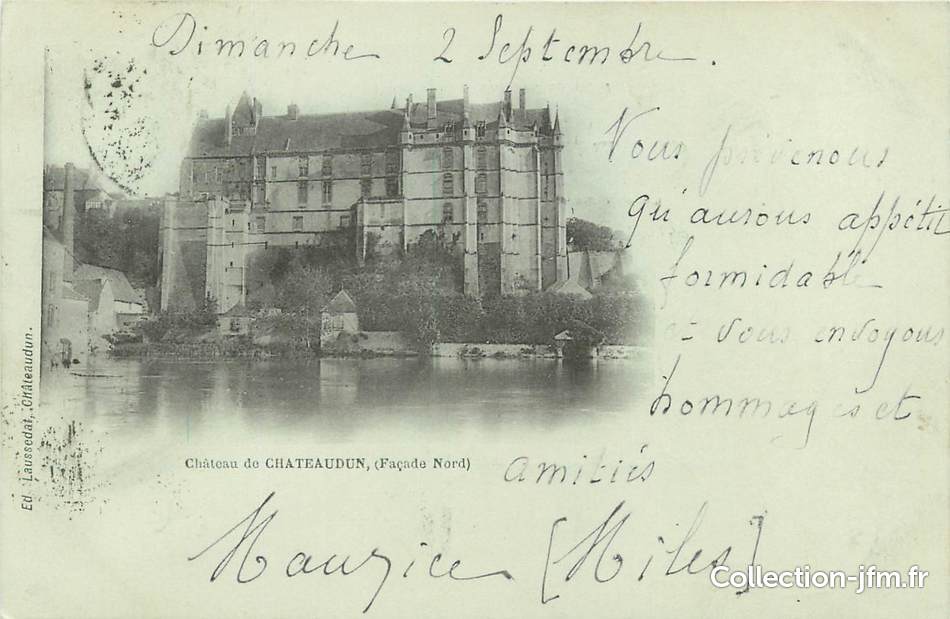 Dimanche 2 Septembre.
Vous prévenous
qu'aurous appétit
formidable
et vous envoyous
hommages et
amitiés
Château de CHATEAUDUN, (Façade Nord)
Ed. Laussedat, Châteaudun.
[Miles]
Collection-jfm.fr